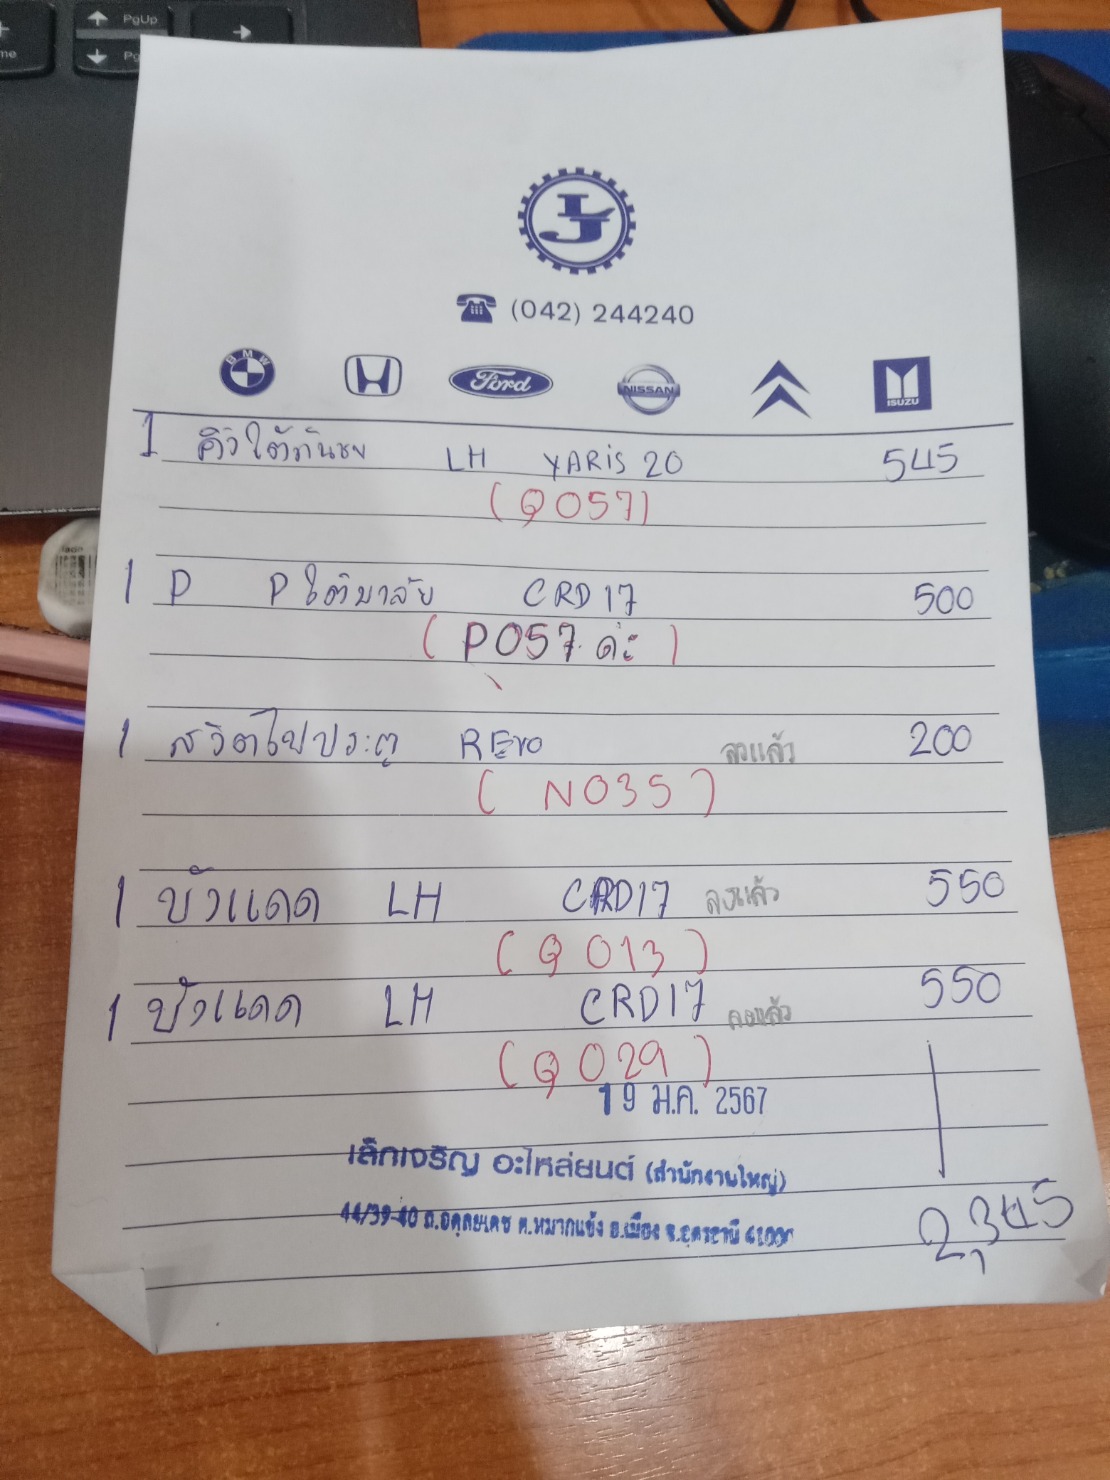 PgUp
LJ
(042) 244240
BMW Ford NISSAN ISUZU
1 คิ้วใต้กันชน LH YARiS 20 545
(Q057)
1 P P ใต้บาลัย CRD 17 500
(P057 ค่ะ)
1 สวิตไฟประตู REVO ลงแล้ว 200
(N035)
1 บังแดด LH CRD17 ลงแล้ว 550
(Q013)
1 บังแดด LH CRD17 ลงแล้ว 550
(Q029)
19 ม.ค. 2567
เล็กเจริญ อะไหล่ยนต์ (สำนักงานใหญ่)
44/39-40 ถ.อดุลยเดช ต.หมากแข้ง อ.เมือง จ.อุดรธานี 41000
2,345